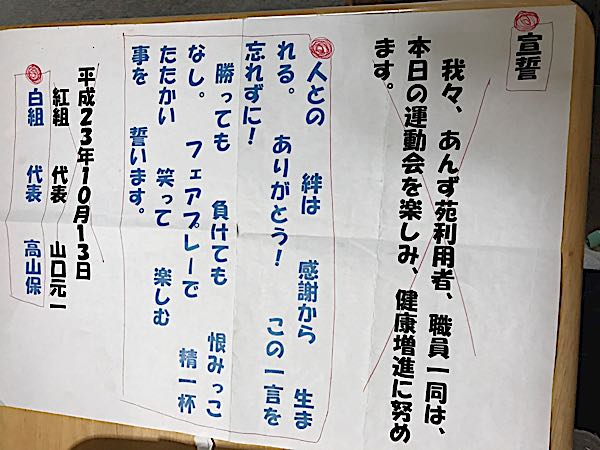 宣誓
我々、あんず苑利用者、職員一同は、
本日の運動会を楽しみ、健康増進に努め
ます。
人との 絆は 感謝から 生ま
れる。 ありがとう! この一言を
忘れずに!
勝っても 負けても 恨みっこ
なし。 フェアプレーで 精一杯
たたかい 笑って 楽しむ
事を 誓います。
平成23年10月13日
紅組 代表 山口元一
白組 代表 高山保